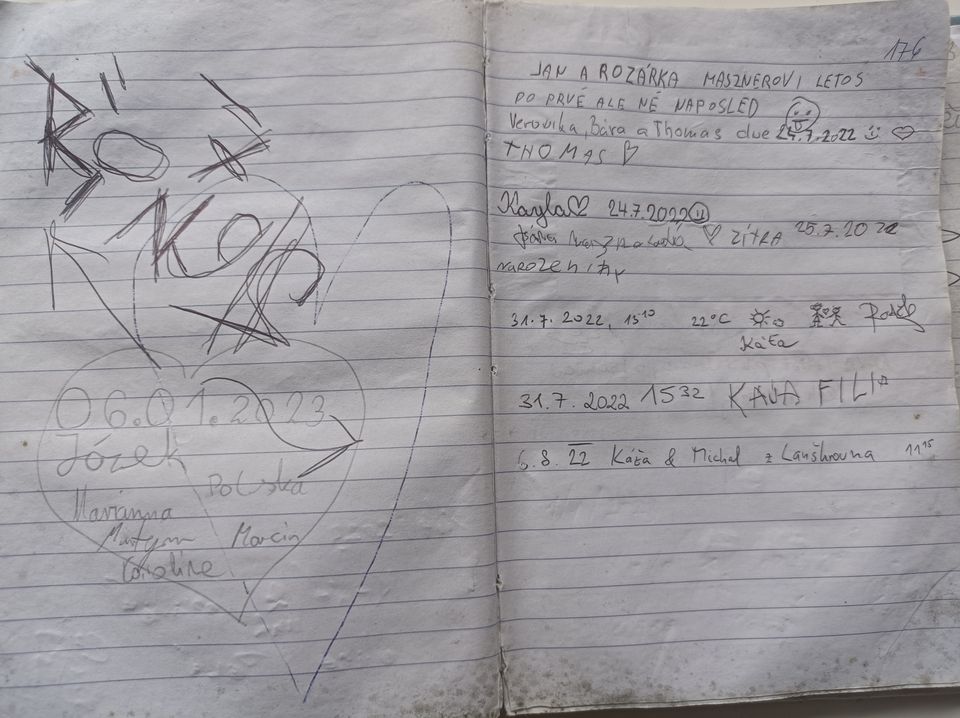 06.01.2023
Józek
Polska
Marianna
Martyna Marcin
Karolina
176
JAN A ROZÁRKA MASZNEROVI LETOS
PO PRVÉ ALE NÉ NAPOSLED
Veronika, Bára a Thomas dne 24.7.2022
THOMAS
Kayla 24.7.2022
ZÍTRA 25.7.2022
narozeniny
31.7.2022, 15¹⁰ 22°C
Káťa
31.7.2022 15³² KAJA FILIP
6.8.22 Káťa & Michal z Lanškrouna 11¹⁵